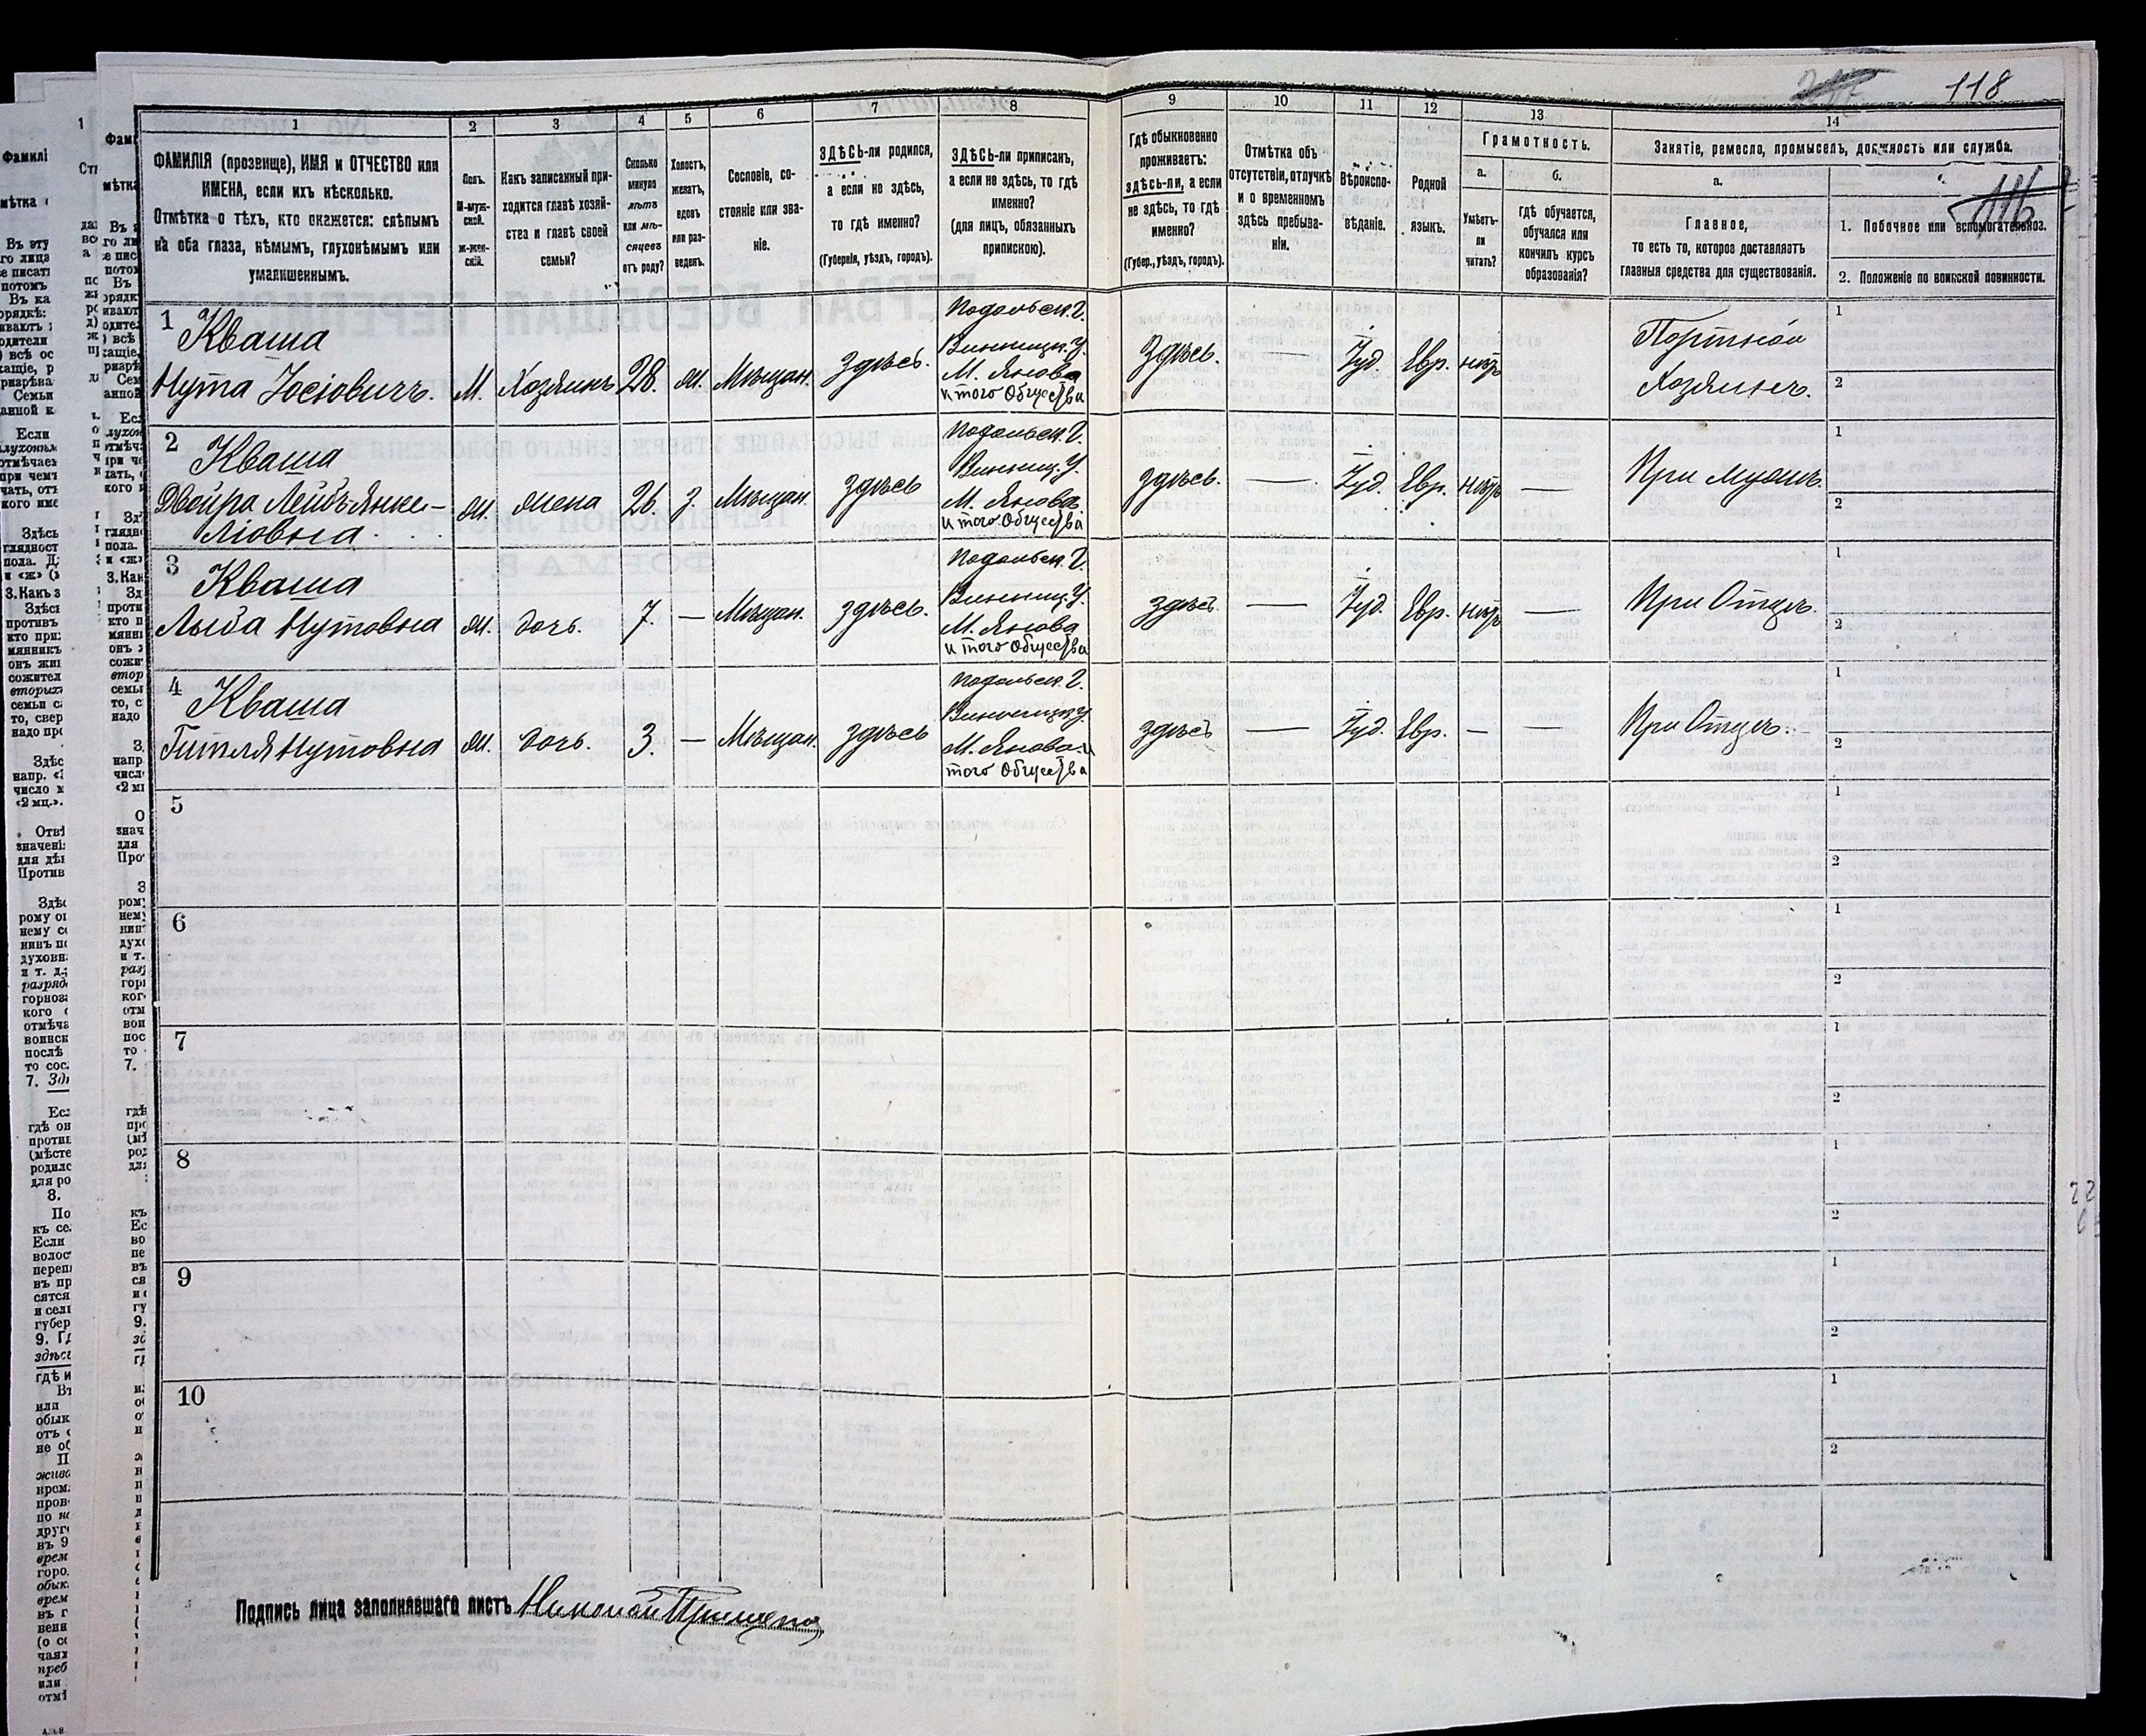 118
1 2 3 4 5 6 7 8 9 10 11 12 13 14
ФАМИЛІЯ (прозвище), ИМЯ и ОТЧЕСТВО или
ИМЕНА, если ихъ нѣсколько.
Отмѣтка о тѣхъ, кто окажется: слѣпымъ
на оба глаза, нѣмымъ, глухонѣмымъ или
умалишеннымъ.
Полъ.
М-муж-
ской.
Ж-жен-
скій.
Какъ записанный при-
ходится главѣ хозяй-
ства и главѣ своей
семьи?
Сколько
минуло
лѣтъ
или мѣ-
сяцевъ
отъ роду?
Холостъ,
женатъ,
вдовъ
или раз-
веденъ.
Сословіе, со-
стояніе или зва-
ніе.
ЗДѢСЬ-ли родился,
а если не здѣсь,
то гдѣ именно?
(Губернія, уѣздъ, городъ).
ЗДѢСЬ-ли приписанъ,
а если не здѣсь, то гдѣ
именно?
(для лицъ, обязанныхъ
припискою).
Гдѣ обыкновенно
проживаетъ:
здѣсь-ли, а если
не здѣсь, то гдѣ
именно?
(Губер., уѣздъ, городъ).
Отмѣтка объ
отсутствіи, отлучкѣ
и о временномъ
здѣсь пребыва-
ніи.
Вѣроиспо-
вѣданіе.
Родной
языкъ.
Грамотность.
а.
Умѣетъ-
ли
читать?
б.
гдѣ обучается,
обучался или
кончилъ курсъ
образованія?
Занятіе, ремесло, промыселъ, должность или служба.
а.
Главное,
то есть то, которое доставляетъ
главныя средства для существованія.
1. Побочное или вспомогательное.
2. Положеніе по воинской повинности.
1 Кваша
Нута Іосіовичъ. М. Хозяинъ 28. ж. Мѣщан. Здѣсь.
Подольск. Г.
Винницк. У.
М. Янова
и того Общества
Здѣсь. — Іуд. Евр. нѣтъ
Портной
Хозяинъ.
1
2
2 Кваша
Двойра Лейбъ-Янке-
ліовна ж. жена 26. з. Мѣщан. здѣсь
Подольск. Г.
Винниц. У.
М. Янова
и того Общества
здѣсь. — Іуд. Евр. нѣтъ — При мужѣ.
1
2
3 Кваша
Нутовна ж. дочь. 7. — Мѣщан. здѣсь.
Подольск. Г.
Винниц. У.
М. Янова
и того Общества
здѣсь. — Іуд. Евр. нѣтъ — При Отцѣ.
1
2
4 Кваша
Гитля Нутовна ж. дочь. 3. — Мѣщан. здѣсь
Подольск. Г.
Винницк. У.
М. Янова и
того Общества
здѣсь — Іуд. Евр. — — При Отцѣ.
1
2
5
1
2
6
1
2
7
1
2
8
1
2
9
1
2
10
1
2
Подпись лица заполнявшаго листъ Николай